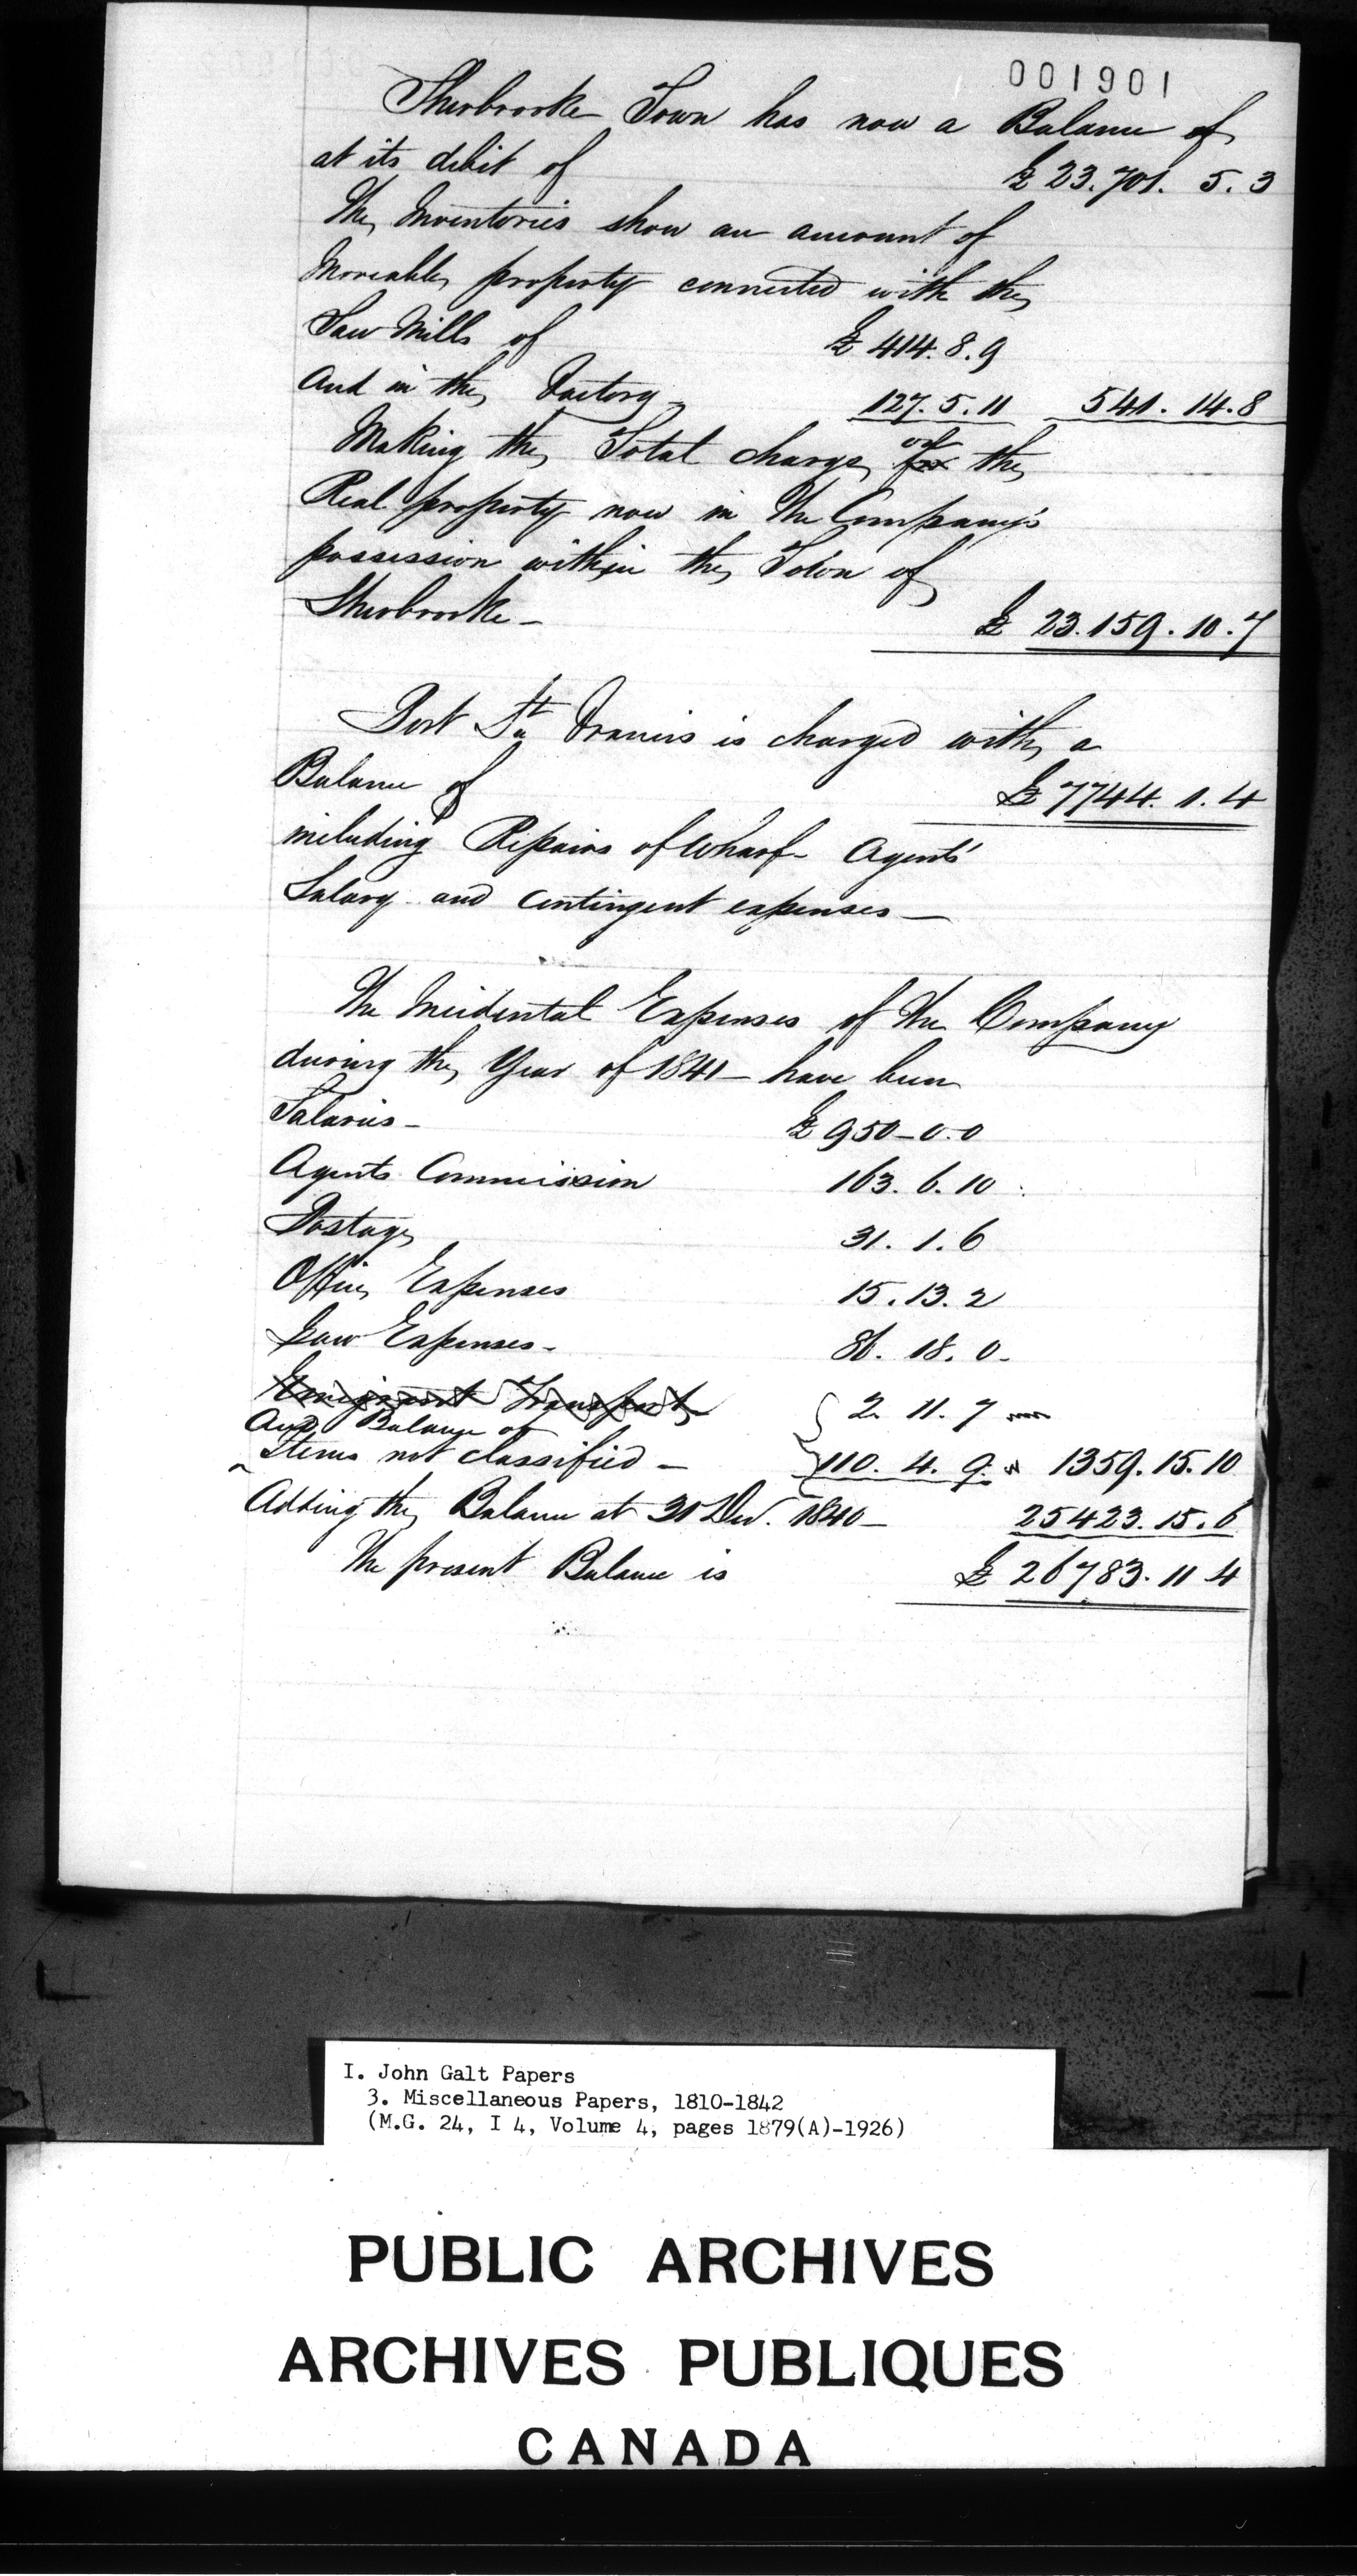 001901
Sherbrooke Town has now a Balance of
at its debit of £ 23.701. 5. 3
The Inventories show an amount of
Moveable property connected with the
Saw Mills of £ 414. 8. 9
And in the Factory - 127. 5. 11 541. 14. 8
Making the Total charge for of the
Real property now in the Company's
possession within the Town of
Sherbrooke - £ 23.159. 10. 7
Port St Francis is charged with a
Balance of £ 7744. 1. 4
including Repairs of Wharf Agents'
Salary and contingent expenses —
The Incidental Expenses of the Company
during the Year of 1841 - have been
Salaries - £ 950 - 0. 0
Agents Commission 163. 6. 10
Postage 31. 1. 6
Office Expenses 15. 13. 2
Law Expenses - 86. 18. 0 -
Emigrant Transport - 2. 11. 7
And Balance of
Items not classified - 110. 4. 9. 1359. 15. 10
Adding the Balance at 31 Dec. 1840 - 25423. 15. 6
The present Balance is £ 26783. 11 4
I. John Galt Papers
3. Miscellaneous Papers, 1810-1842
(M.G. 24, I 4, Volume 4, pages 1879(A)-1926)
PUBLIC ARCHIVES
ARCHIVES PUBLIQUES
CANADA